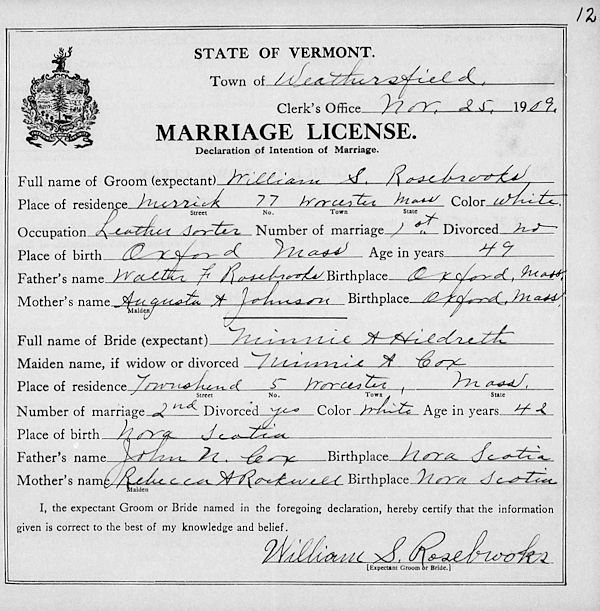 12
STATE OF VERMONT.
Town of Weathersfield.
Clerk's Office Nov. 25. 1909.
MARRIAGE LICENSE.
Declaration of Intention of Marriage.
Full name of Groom (expectant) William S. Rosebrooks
Place of residence Merrick 77 Worcester Mass Color White.
Street No. Town State
Occupation Leather Sorter Number of marriage 1st Divorced no
Place of birth Oxford Mass Age in years 49
Father's name Walter F. Rosebrooks Birthplace Oxford, Mass.
Mother's name Augusta A Johnson Birthplace Oxford, Mass.
Maiden
Full name of Bride (expectant) Minnie A Hildreth
Maiden name, if widow or divorced Minnie A Cox
Place of residence Townshend 5 Worcester, Mass.
Street No. Town State
Number of marriage 2nd Divorced yes Color White Age in years 42
Place of birth Nova Scotia
Father's name John N. Cox Birthplace Nova Scotia
Mother's name Rebecca A Rockwell Birthplace Nova Scotia
Maiden
I, the expectant Groom or Bride named in the foregoing declaration, hereby certify that the information
given is correct to the best of my knowledge and belief.
William S. Rosebrooks
[Expectant Groom or Bride.]